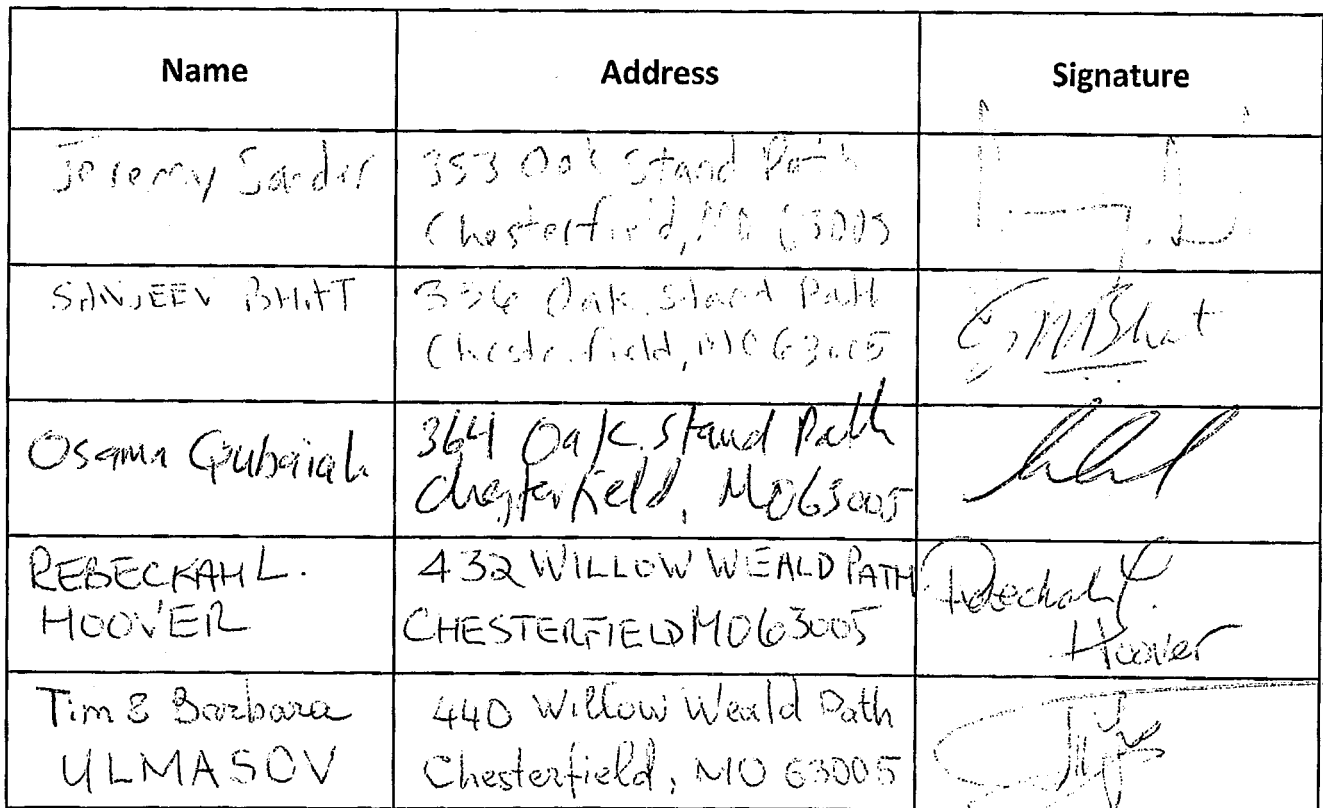 Name Address Signature
Jeremy Sander
353 Oak Stand Path
Chesterfield, MO 63005
SANJEEV BHATT
336 Oak Stand Path
Chesterfield, MO 63005
SMBhat
Osama Qubaiah
364 Oak Stand Path
Chesterfield, MO 63005
REBECKAH L.
HOOVER
432 WILLOW WEALD PATH
CHESTERFIELD MO 63005
Rebeckah L.
Hoover
Tim & Barbara
ULMASOV
440 Willow Weald Path
Chesterfield, MO 63005